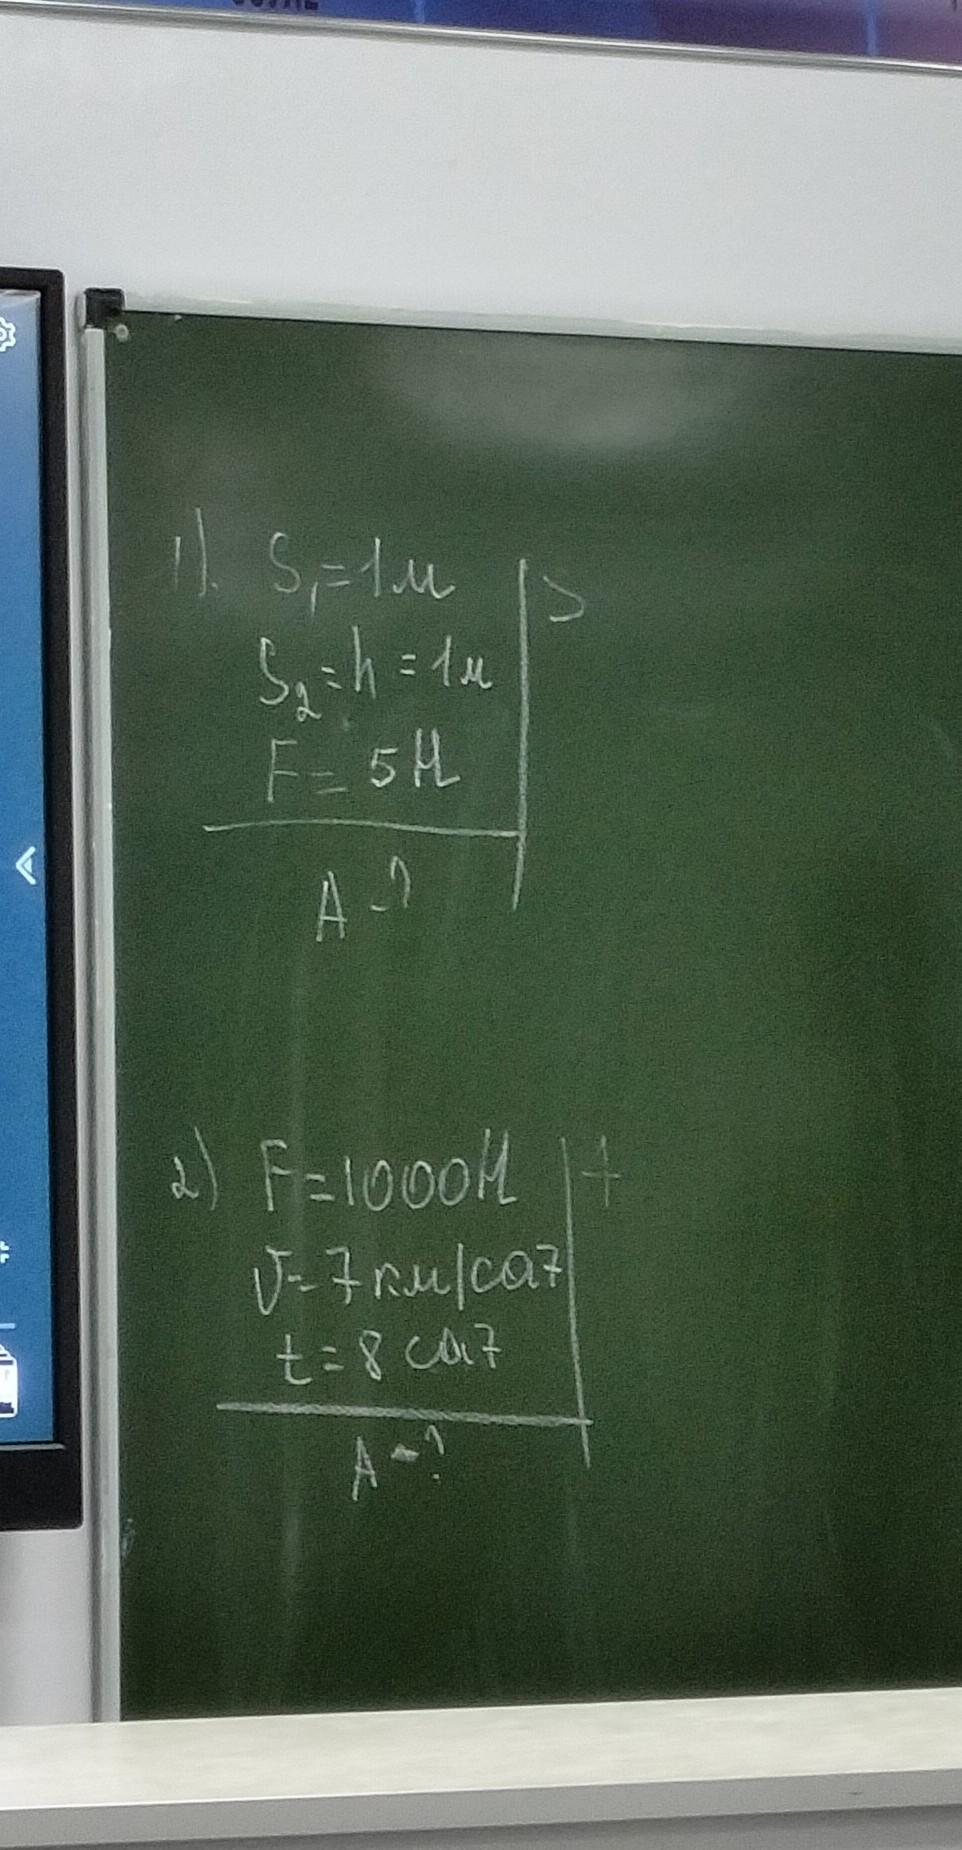 1). S₁=1м >
S₂=h=1м
F=5Н
A-?
2) F=1000Н +
υ=7км/сағ
t=8 сағ
A-?